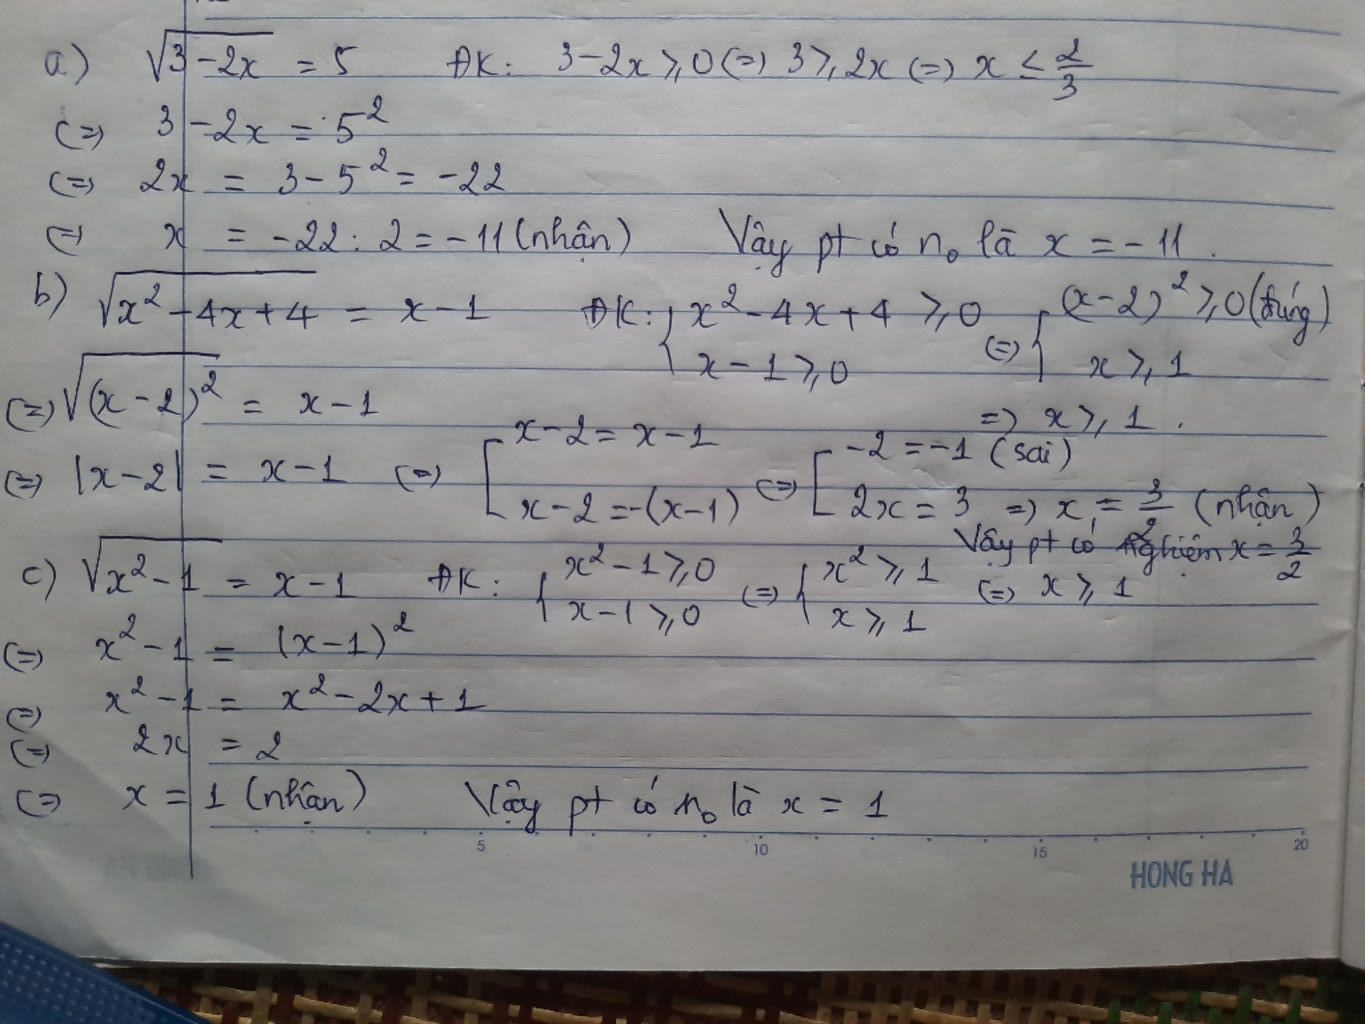 a) √(3-2x) = 5 ĐK: 3-2x ≥ 0 (=) 3 ≥ 2x (=) x ≤ 2/3
(=) 3-2x = 5²
(=) 2x = 3-5² = -22
(=) x = -22 : 2 = -11 (nhận) Vậy pt có n₀ là x = -11.
b) √(x²-4x+4) = x-1 ĐK: { x²-4x+4 ≥ 0 ; x-1 ≥ 0 (=) { (x-2)² ≥ 0 (đúng) ; x ≥ 1
(=) √((x-2)²) = x-1 =) x ≥ 1.
(=) |x-2| = x-1 (=) [ x-2 = x-1 ; x-2 = -(x-1) (=) [ -2 = -1 (sai) ; 2x = 3 =) x = 3/2 (nhận)
Vậy pt có nghiệm x = 3/2
c) √(x²-1) = x-1 ĐK: { x²-1 ≥ 0 ; x-1 ≥ 0 (=) { x² ≥ 1 ; x ≥ 1 (=) x ≥ 1
(=) x²-1 = (x-1)²
(=) x²-1 = x²-2x+1
(=) 2x = 2
(=) x = 1 (nhận) Vậy pt có n₀ là x = 1
5 10 15 20
HONG HA